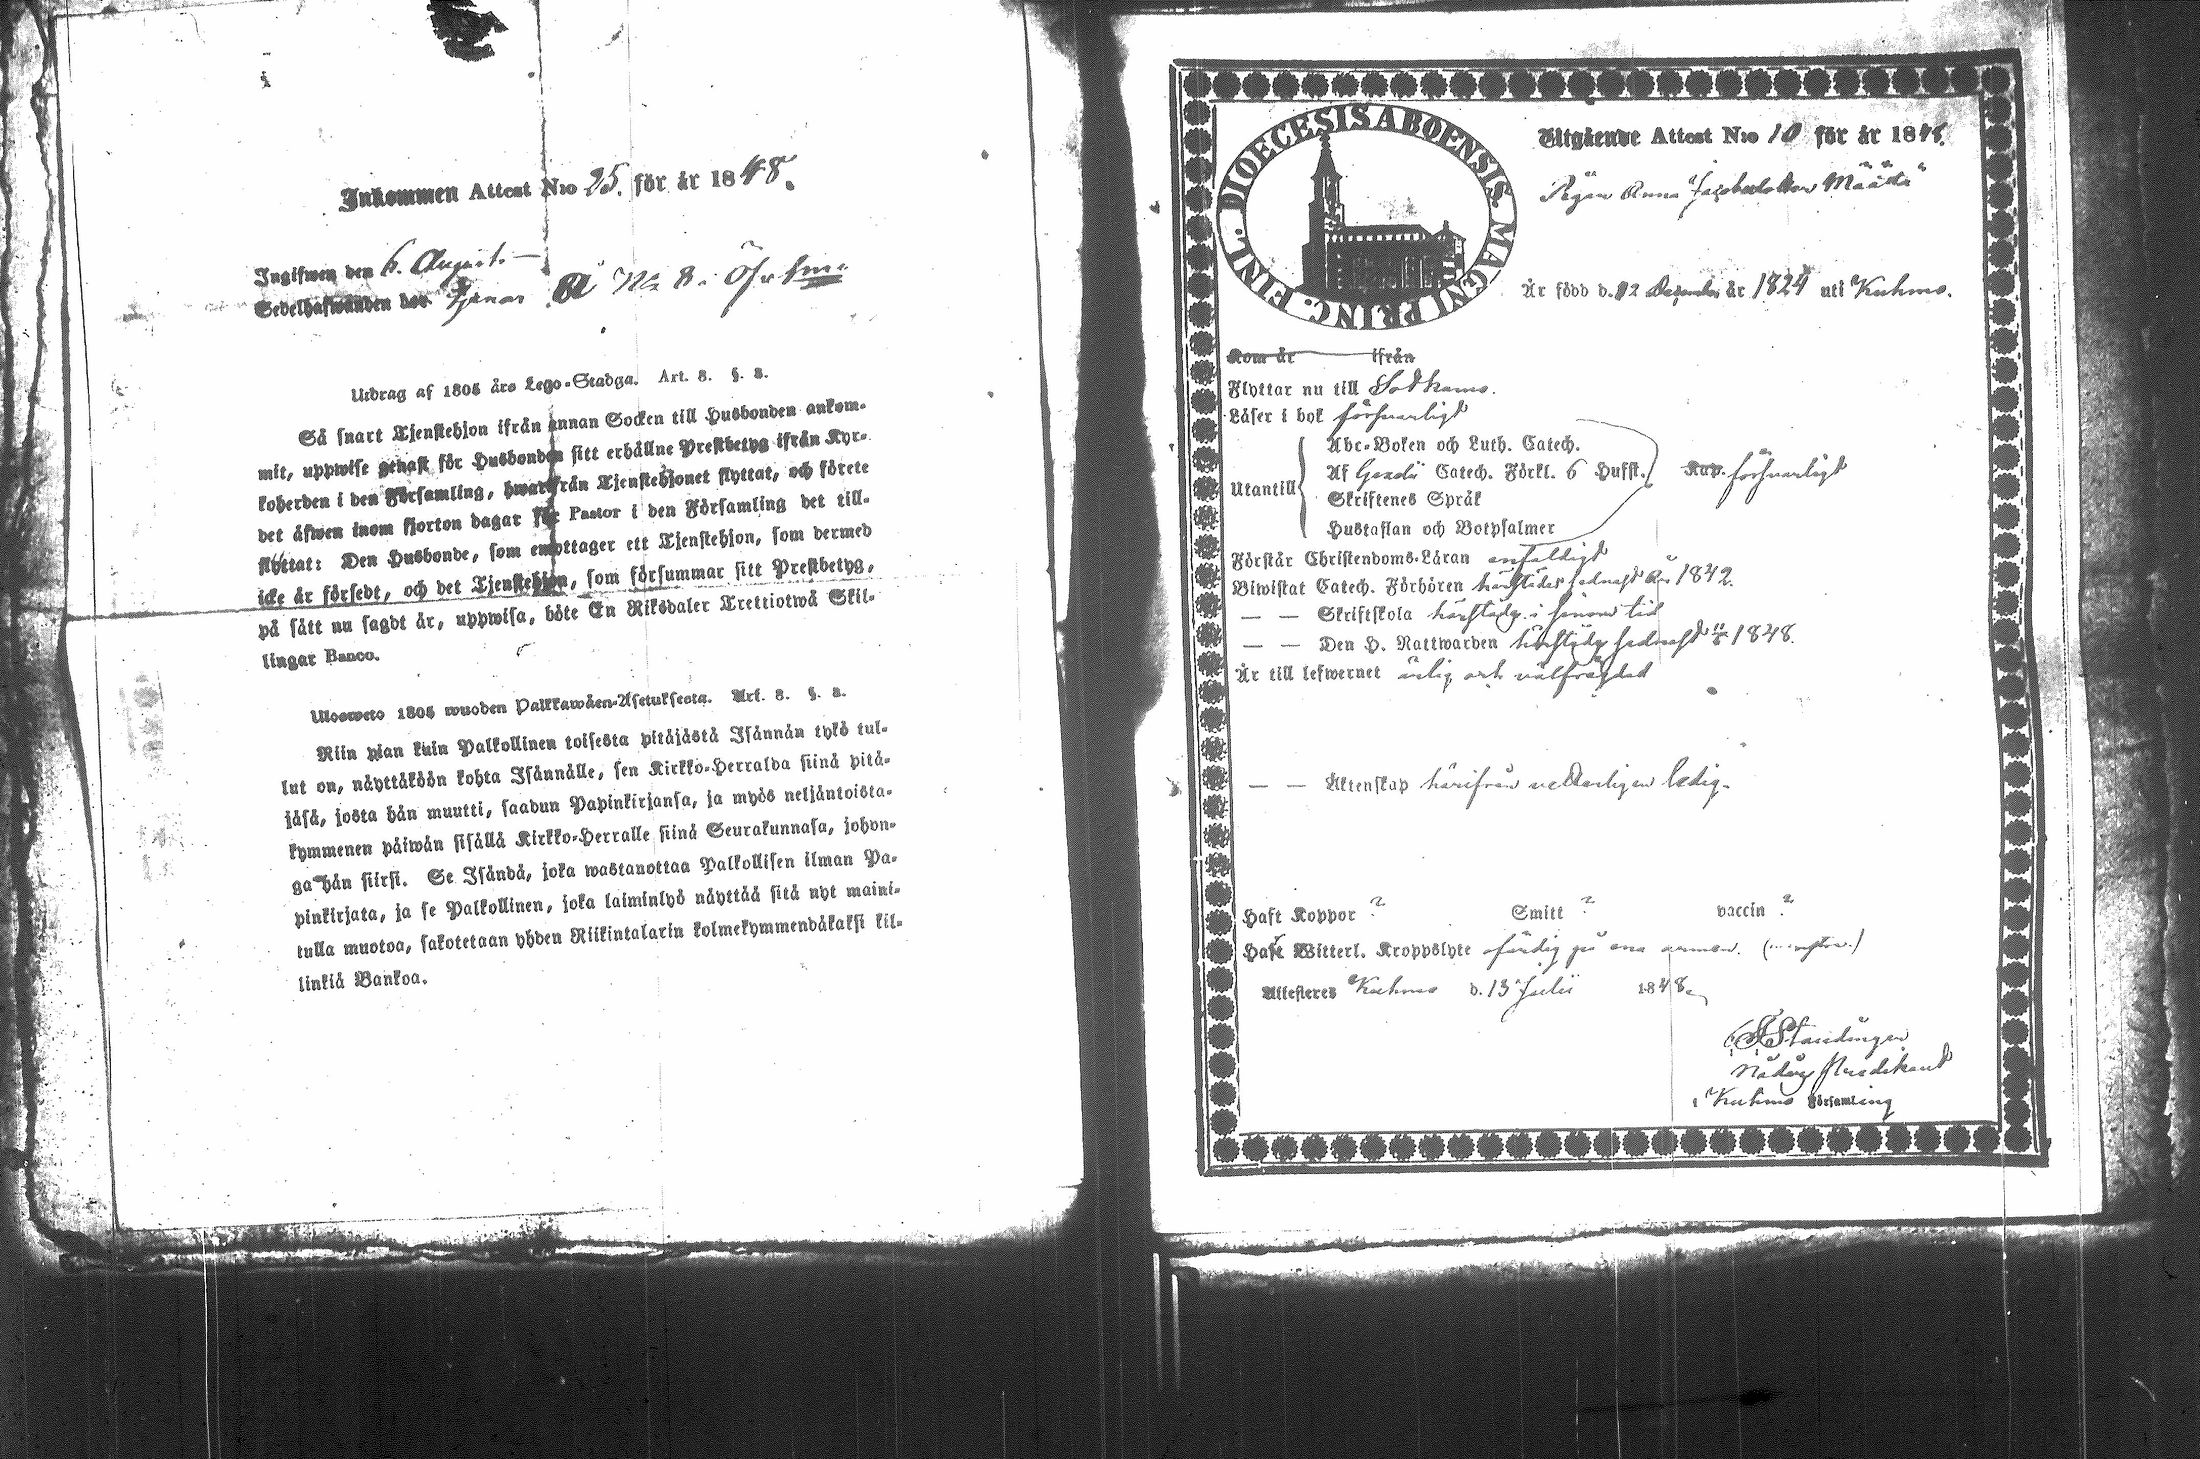 Inkommen Attest N:o 25. för år 1848.
Ingifwen den 6. August.
Sedelhafwanden har tjenar å No 8.
Utdrag af 1805 års Lego-Stadga. Art. 8. §. 2.
Så snart Tjenstehjon ifrån annan Socken till Husbonden ankom-
mit, uppwise genast för Husbonden sitt erhållne Prestbetyg ifrån Kyr-
koherden i den Församling, hwarifrån Tjenstehjonet flyttat, och förete
det äfwen inom fjorton dagar för Pastor i den Församling det till-
flyttat: Den Husbonde, som emottager ett Tjenstehjon, som dermed
icke är försedt, och det Tjenstehjon, som försummar sitt Prestbetyg,
på sätt nu sagdt är, uppwisa, böte En Riksdaler Trettiotwå Skil-
lingar Banco.
Ulosweto 1805 wuoden Palkkawäen-Asetuksesta. Art. 8. §. 2.
Niin pian kuin Palkollinen toisesta pitäjästä Isännän tykö tul-
lut on, näyttäköön kohta Isännälle, sen Kirkko-Herralda siinä pitä-
jäsä, josta hän muutti, saadun Papinkirjansa, ja myös neljäntoista-
kymmenen päiwän sisällä Kirkko-Herralle siinä Seurakunnasa, johon-
ga hän siirsi. Se Isändä, joka wastanottaa Palkollisen ilman Pa-
pinkirjata, ja se Palkollinen, joka laiminlyö näyttää sitä nyt maini-
tulla muotoa, sakotetaan yhden Riikintalarin kolmekymmendäkaksi kil-
linkiä Bankoa.
DIOECESIS ABOENSIS MAGNI PRINC: FINL.
Utgående Attest N:o 10 för år 1848.
Pigan Anna Jacobsdotter Määttä
Är född d. 12 December år 1824 uti Kuhmo.
Kom år ifrån
Flyttar nu till Sotkamo.
Läser i bok försvarligt
Abc-Boken och Luth. Catech.
Utantill Af Catech. Förkl. 6 Hufst. försvarligt
Skriftenes Språk
Hustaflan och Botpsalmer
Förstår Christendoms-Läran enfaldigt
Biwistat Catech. Förhören härstädes sednast år 1842.
— — Skriftskola härstädes i sinom tid
— — Den H. Nattwarden härstädes sednast 1848.
Är till lefwernet ärlig och välfräjdad
— — Äktenskap härifrån vetterligen ledig.
Haft Koppor ? Smitt ? vaccin ?
Haft Witterl. Kroppslyte ofärdig på ena armen.
Attesteres Kuhmo d. 13 Julii 1848.
Nådårs Predikant
i Kuhmo Församling